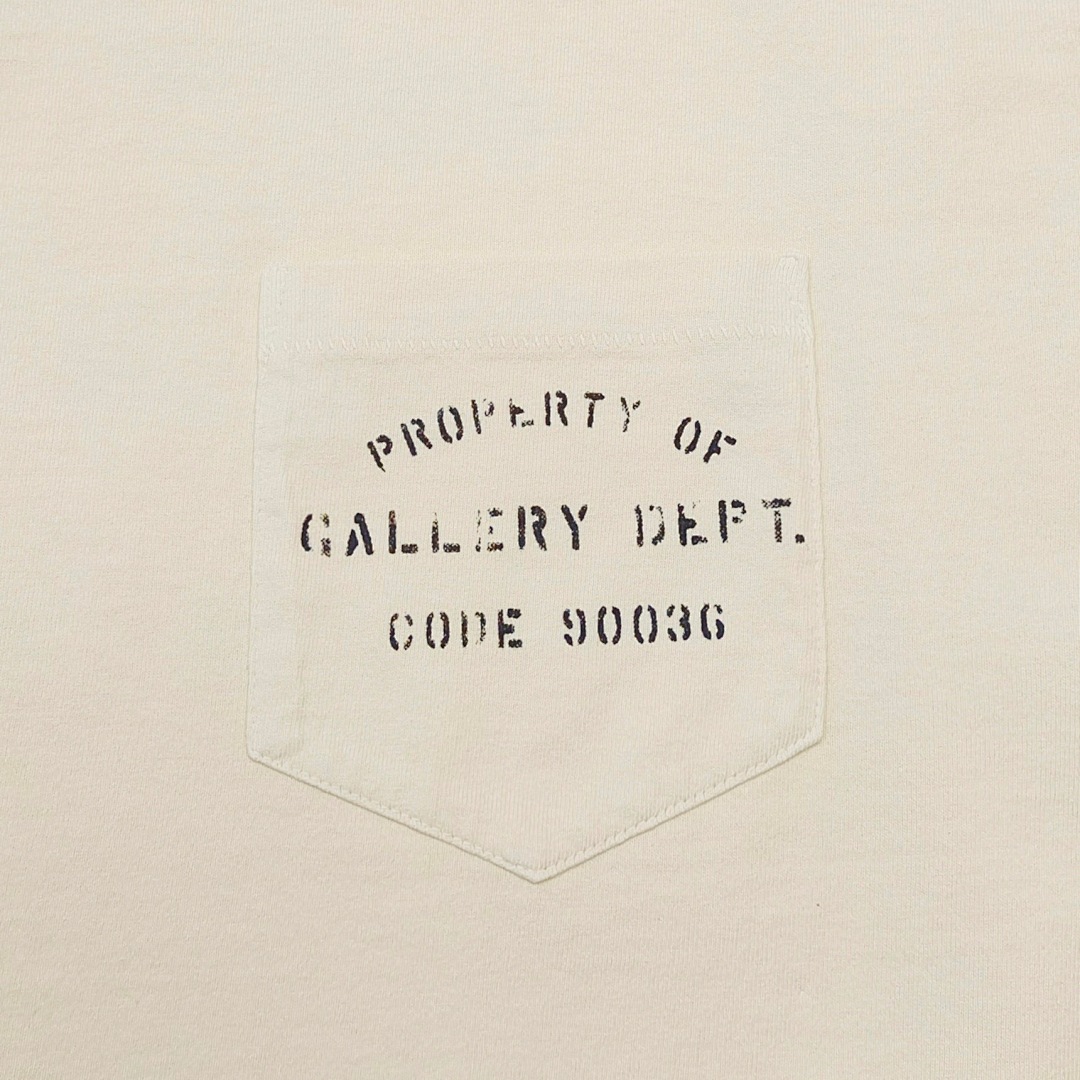 PROPERTY OF
GALLERY DEPT.
CODE 90036